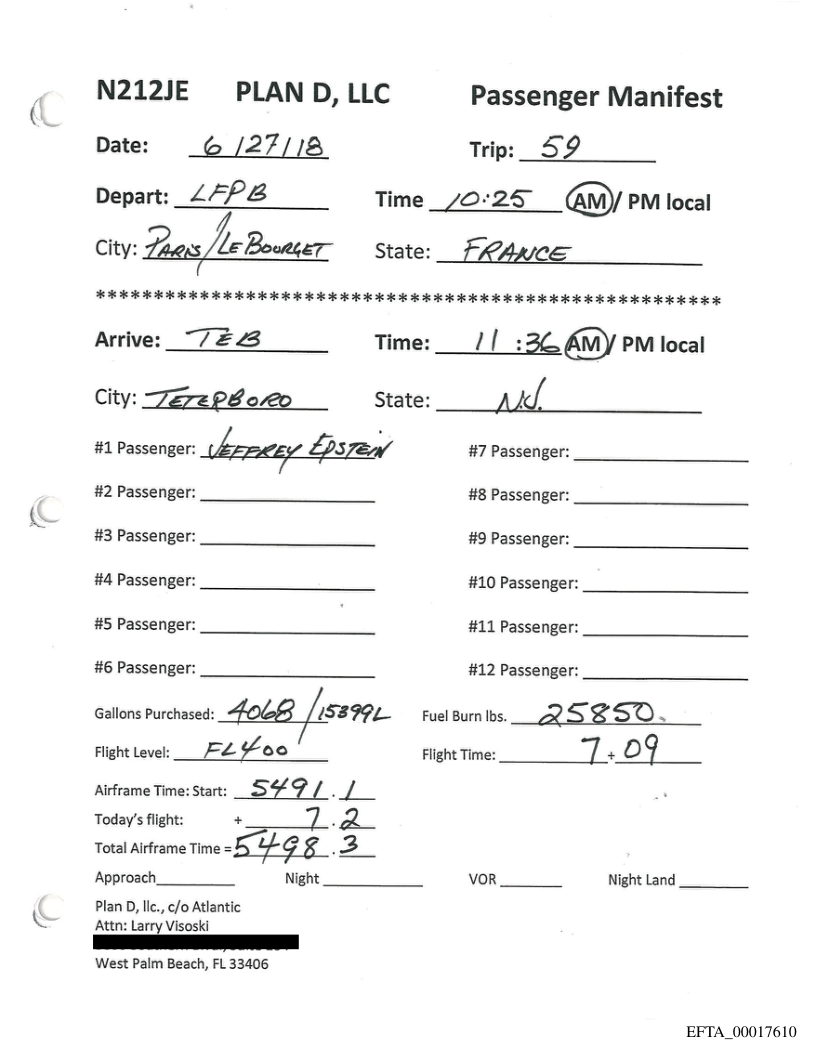 N212JE PLAN D, LLC Passenger Manifest
Date: 6/27/18 Trip: 59
Depart: LFPB Time 10:25 AM/ PM local
City: PARIS/LE BOURGET State: FRANCE
******************************************************
Arrive: TEB Time: 11:36 AM/ PM local
City: TETERBORO State: N.J.
#1 Passenger: JEFFREY EPSTEIN #7 Passenger:
#2 Passenger: #8 Passenger:
#3 Passenger: #9 Passenger:
#4 Passenger: #10 Passenger:
#5 Passenger: #11 Passenger:
#6 Passenger: #12 Passenger:
Gallons Purchased: 4068/15399L Fuel Burn lbs. 25850.
Flight Level: FL400 Flight Time: 7+09
Airframe Time: Start: 5491.1
Today's flight: + 7.2
Total Airframe Time = 5498.3
Approach Night VOR Night Land
Plan D, llc., c/o Atlantic
Attn: Larry Visoski
West Palm Beach, FL 33406
EFTA_00017610